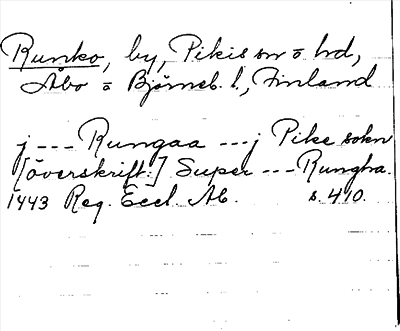 Runko, by, Pikis sn o hd,
Åbo o Björneb. l., Finland
j --- Rungaa --- j Pike sokn
[överskrift:] Super --- Rungha.
1443 Reg. Eccl. Ab. s. 410.